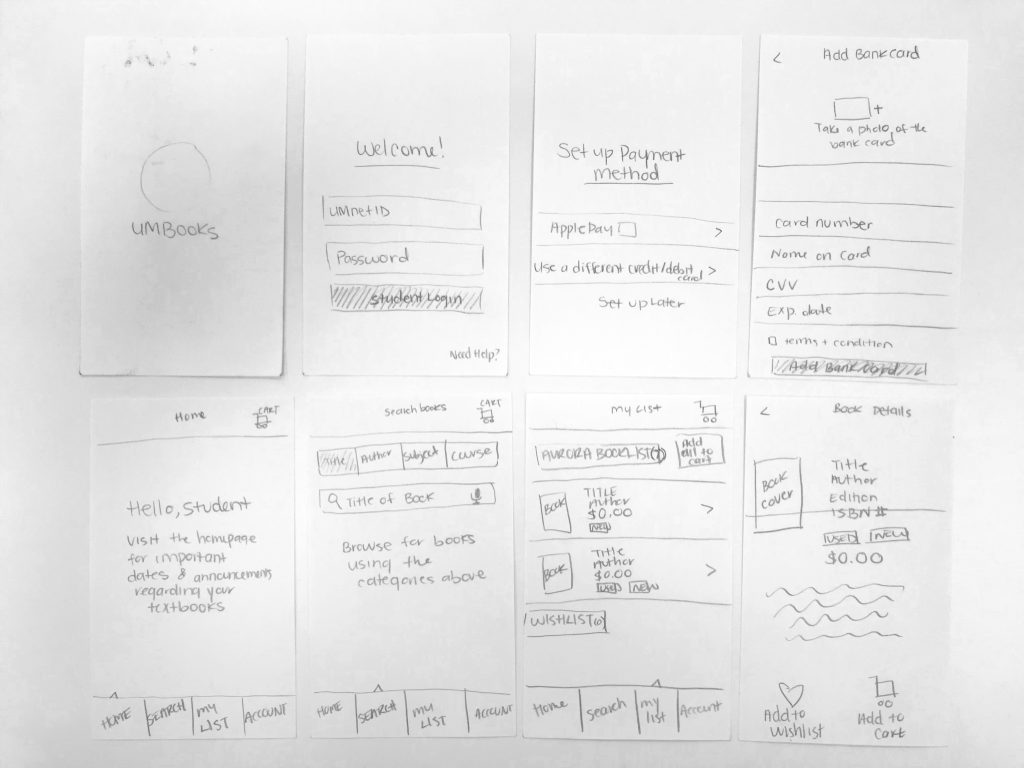 UMBooks
Welcome!
UMnetID
Password
Student Login
Need Help?
Set up Payment
Method
Apple Pay
Use a different credit/debit
card
Set up Later
Add Bankcard
Take a photo of the
bank card
Card number
Name on Card
CVV
Exp. date
terms + condition
Add Bank Card
Home
CART
Hello, Student
Visit the homepage
for important
dates & announcements
regarding your
textbooks
HOME
SEARCH
MY
LIST
ACCOUNT
Search books
CART
Title
Author
Subject
Course
Title of Book
Browse for books
using the
categories above
HOME
SEARCH
MY
LIST
ACCOUNT
My List
AURORA BOOKLIST
Add
all to
cart
BOOK
TITLE
Author
$0.00
NEW
BOOK
Title
Author
$0.00
USED NEW
WISHLIST
Home
Search
My
list
Account
Book Details
BOOK
COVER
Title
Author
Edition
ISBN #
USED NEW
$0.00
Add to
Wishlist
Add to
Cart